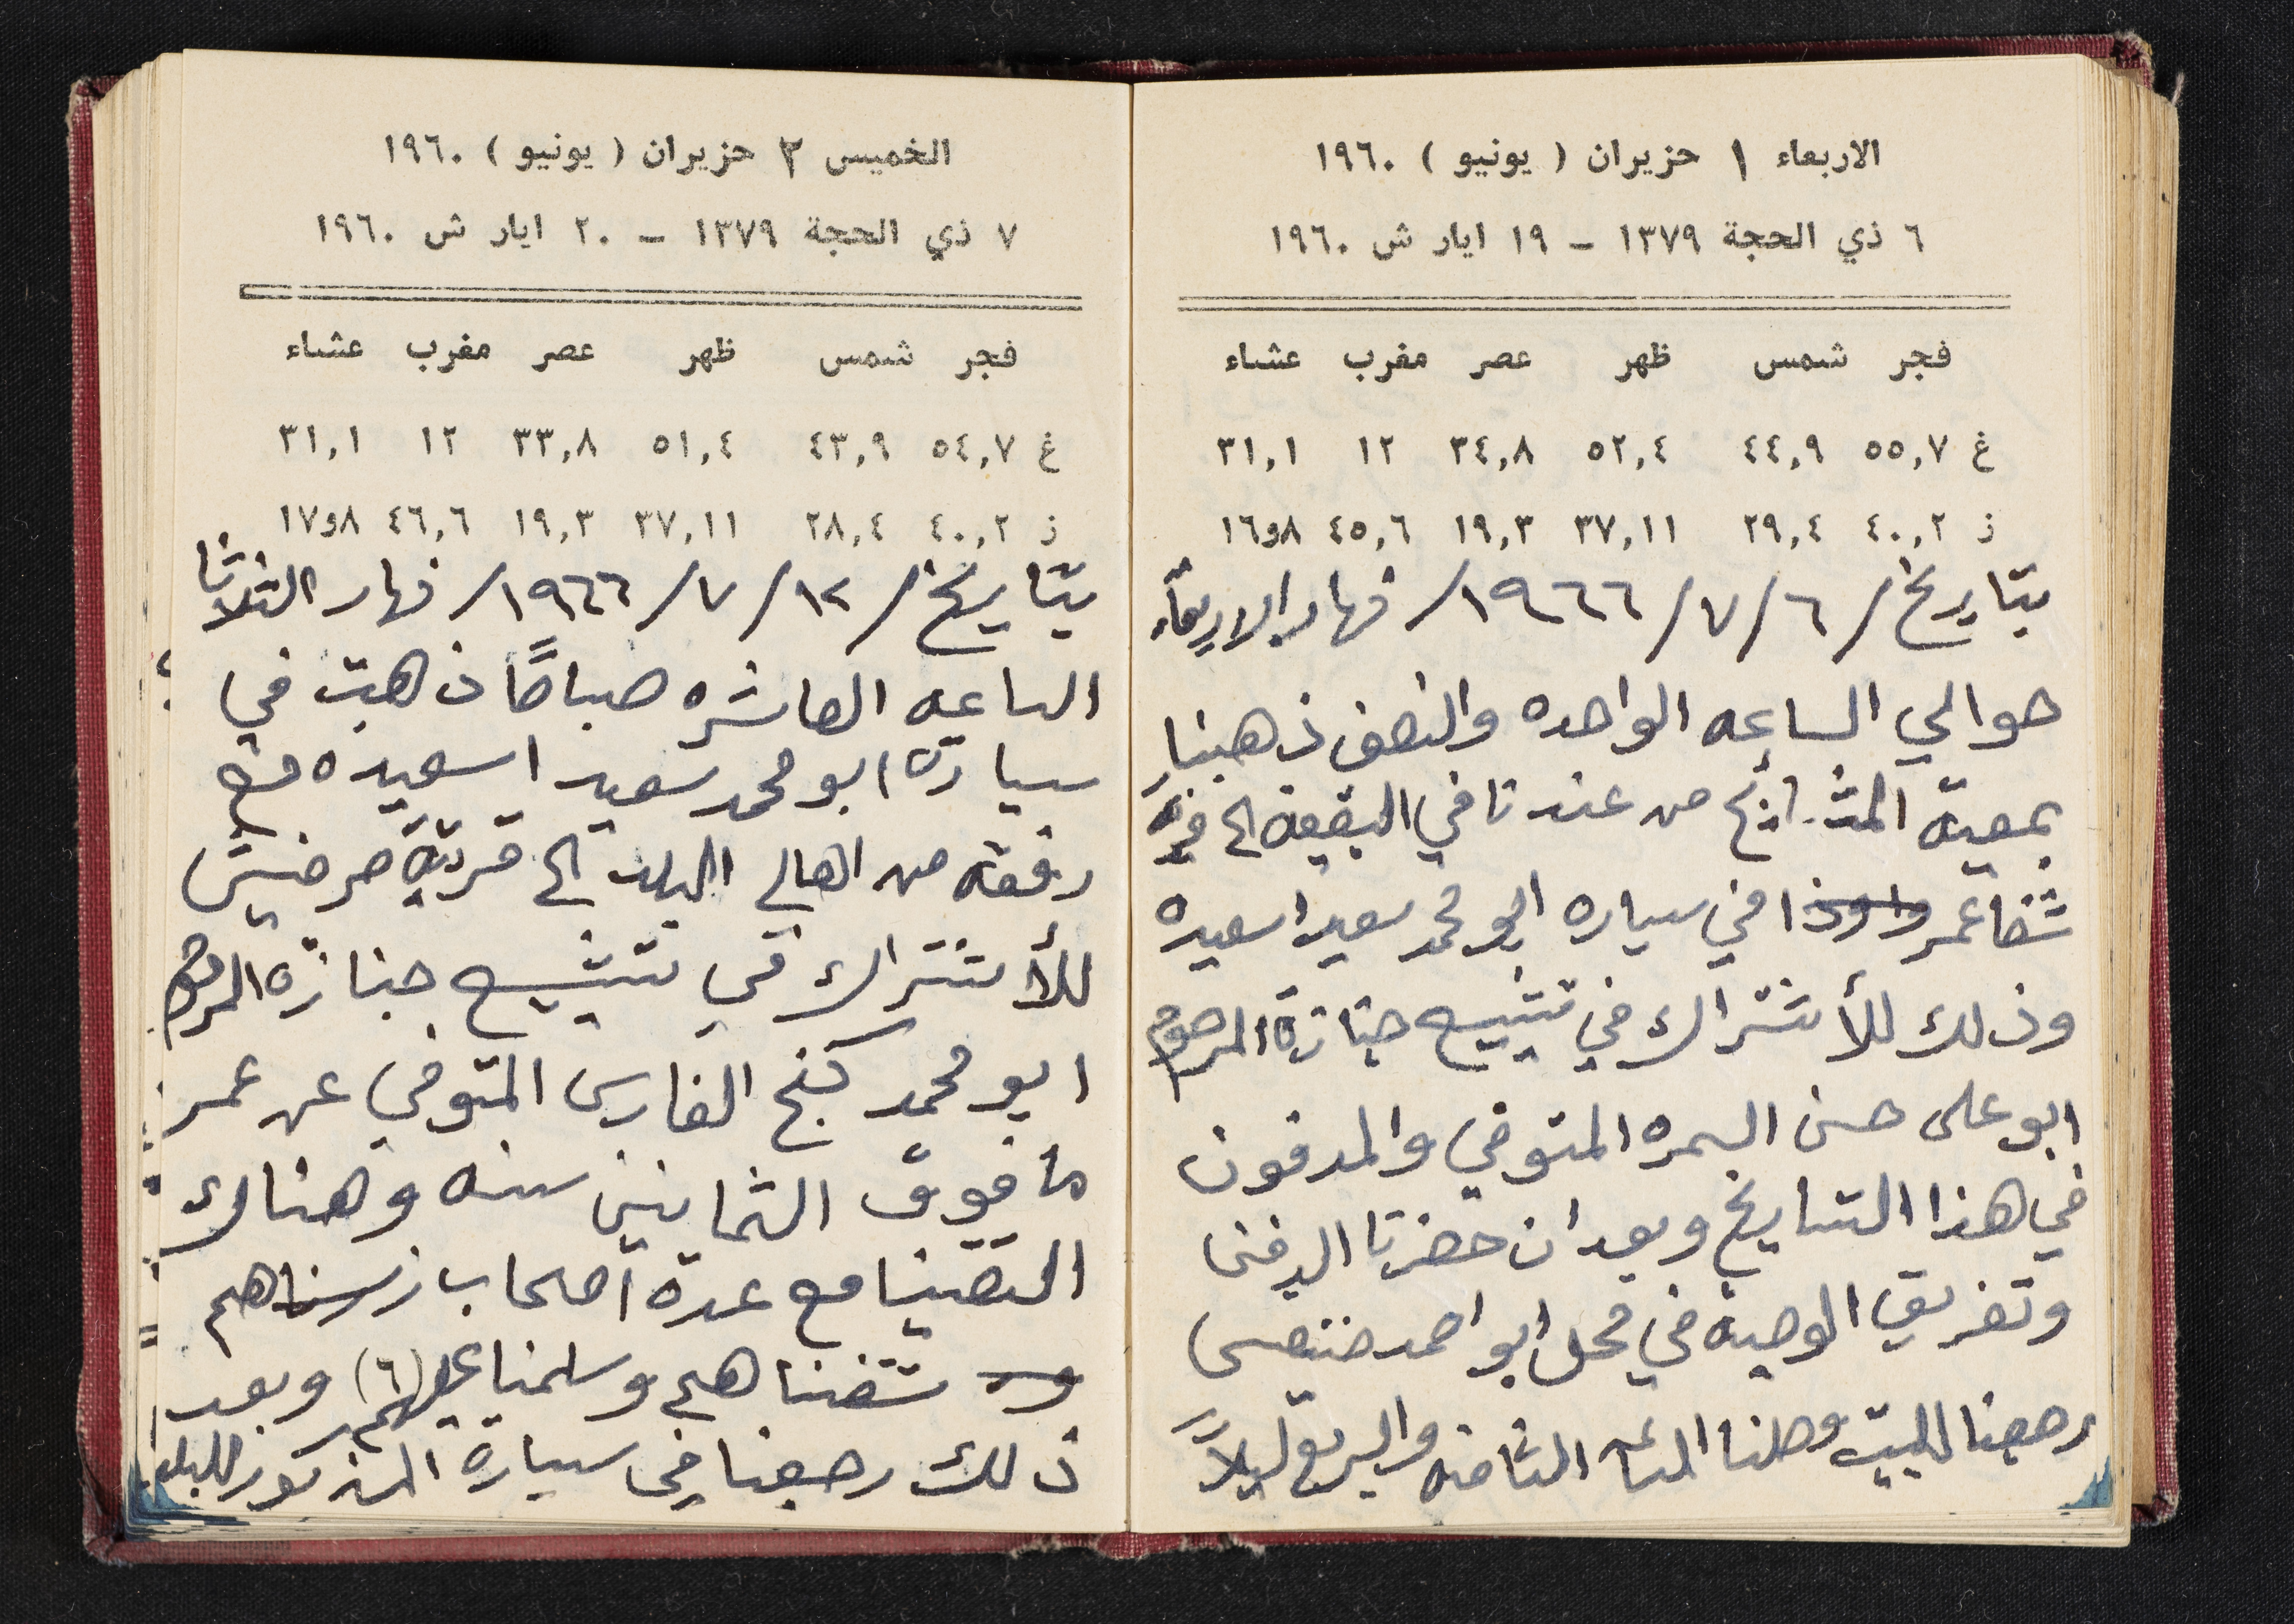 الاربعاء ١ حزيران ( يونيو ) ١٩٦٠
٦ ذي الحجة ١٣٧٩ – ١٩ ايار ش ١٩٦٠
فجر شمس ظهر عصر مغرب عشاء
غ ٥٥,٧ ٤٤,٩ ٥٢,٤ ٣٤,٨ ١٢ ٣١,١
ز ٤٠,٢ ٢٩,٤ ٣٧,١١ ١٩,٣ ٤٥,٦ ٨و١٦
بتاريخ /٦/٧/١٩٦٦/ نهار الاربعاء
حوالي الساعه الواحده والنصف ذهبنا
بمعية المشايخ من عندنا في البقيعه الى قرية
شفاعمر في سياره ابو محمد سعيد اسعيده
وذلك للأشتراك في تشييع جنازة المرحوم
ابو علي حسن السمره المتوفي والمدفون
في هذا التاريخ وبعد ان حضرنا الدفن
وتفريق الوصية في محل ابو احمد
رجعنا للبيت وصلنا الساعه الثامنه والربع ليلاً
الخميس ٢ حزيران ( يونيو ) ١٩٦٠
٧ ذي الحجة ١٣٧٩ – ٢٠ ايار ش ١٩٦٠
فجر شمس ظهر عصر مغرب عشاء
غ ٥٤,٧ ٤٣,٩ ٥١,٤ ٣٣,٨ ١٢ ٣١,١
ز ٤٠,٢ ٢٨,٤ ٣٧,١١ ١٩,٣ ٤٦,٦ ٨و١٧
بتاريخ /١٢/٧/١٩٦٦/ نهار الثلاثا
الساعه العاشره صباحًا ذهبت في
سيارة ابو محمد سعيد اسعيده مع
رفقه من اهالي البلد الى قرية حرفيش
للأشتراك في تشييع جنازة المرحوم
ابو محمد كنج الفارس المتوفي عن عمر
ما فوق الثمانين سنه وهناك
التقينا مع عدة اصحاب
شفناهم وسلمنا عليهم (٦) وبعد
ذلك رجعنا في سيارة المذكور للبلد